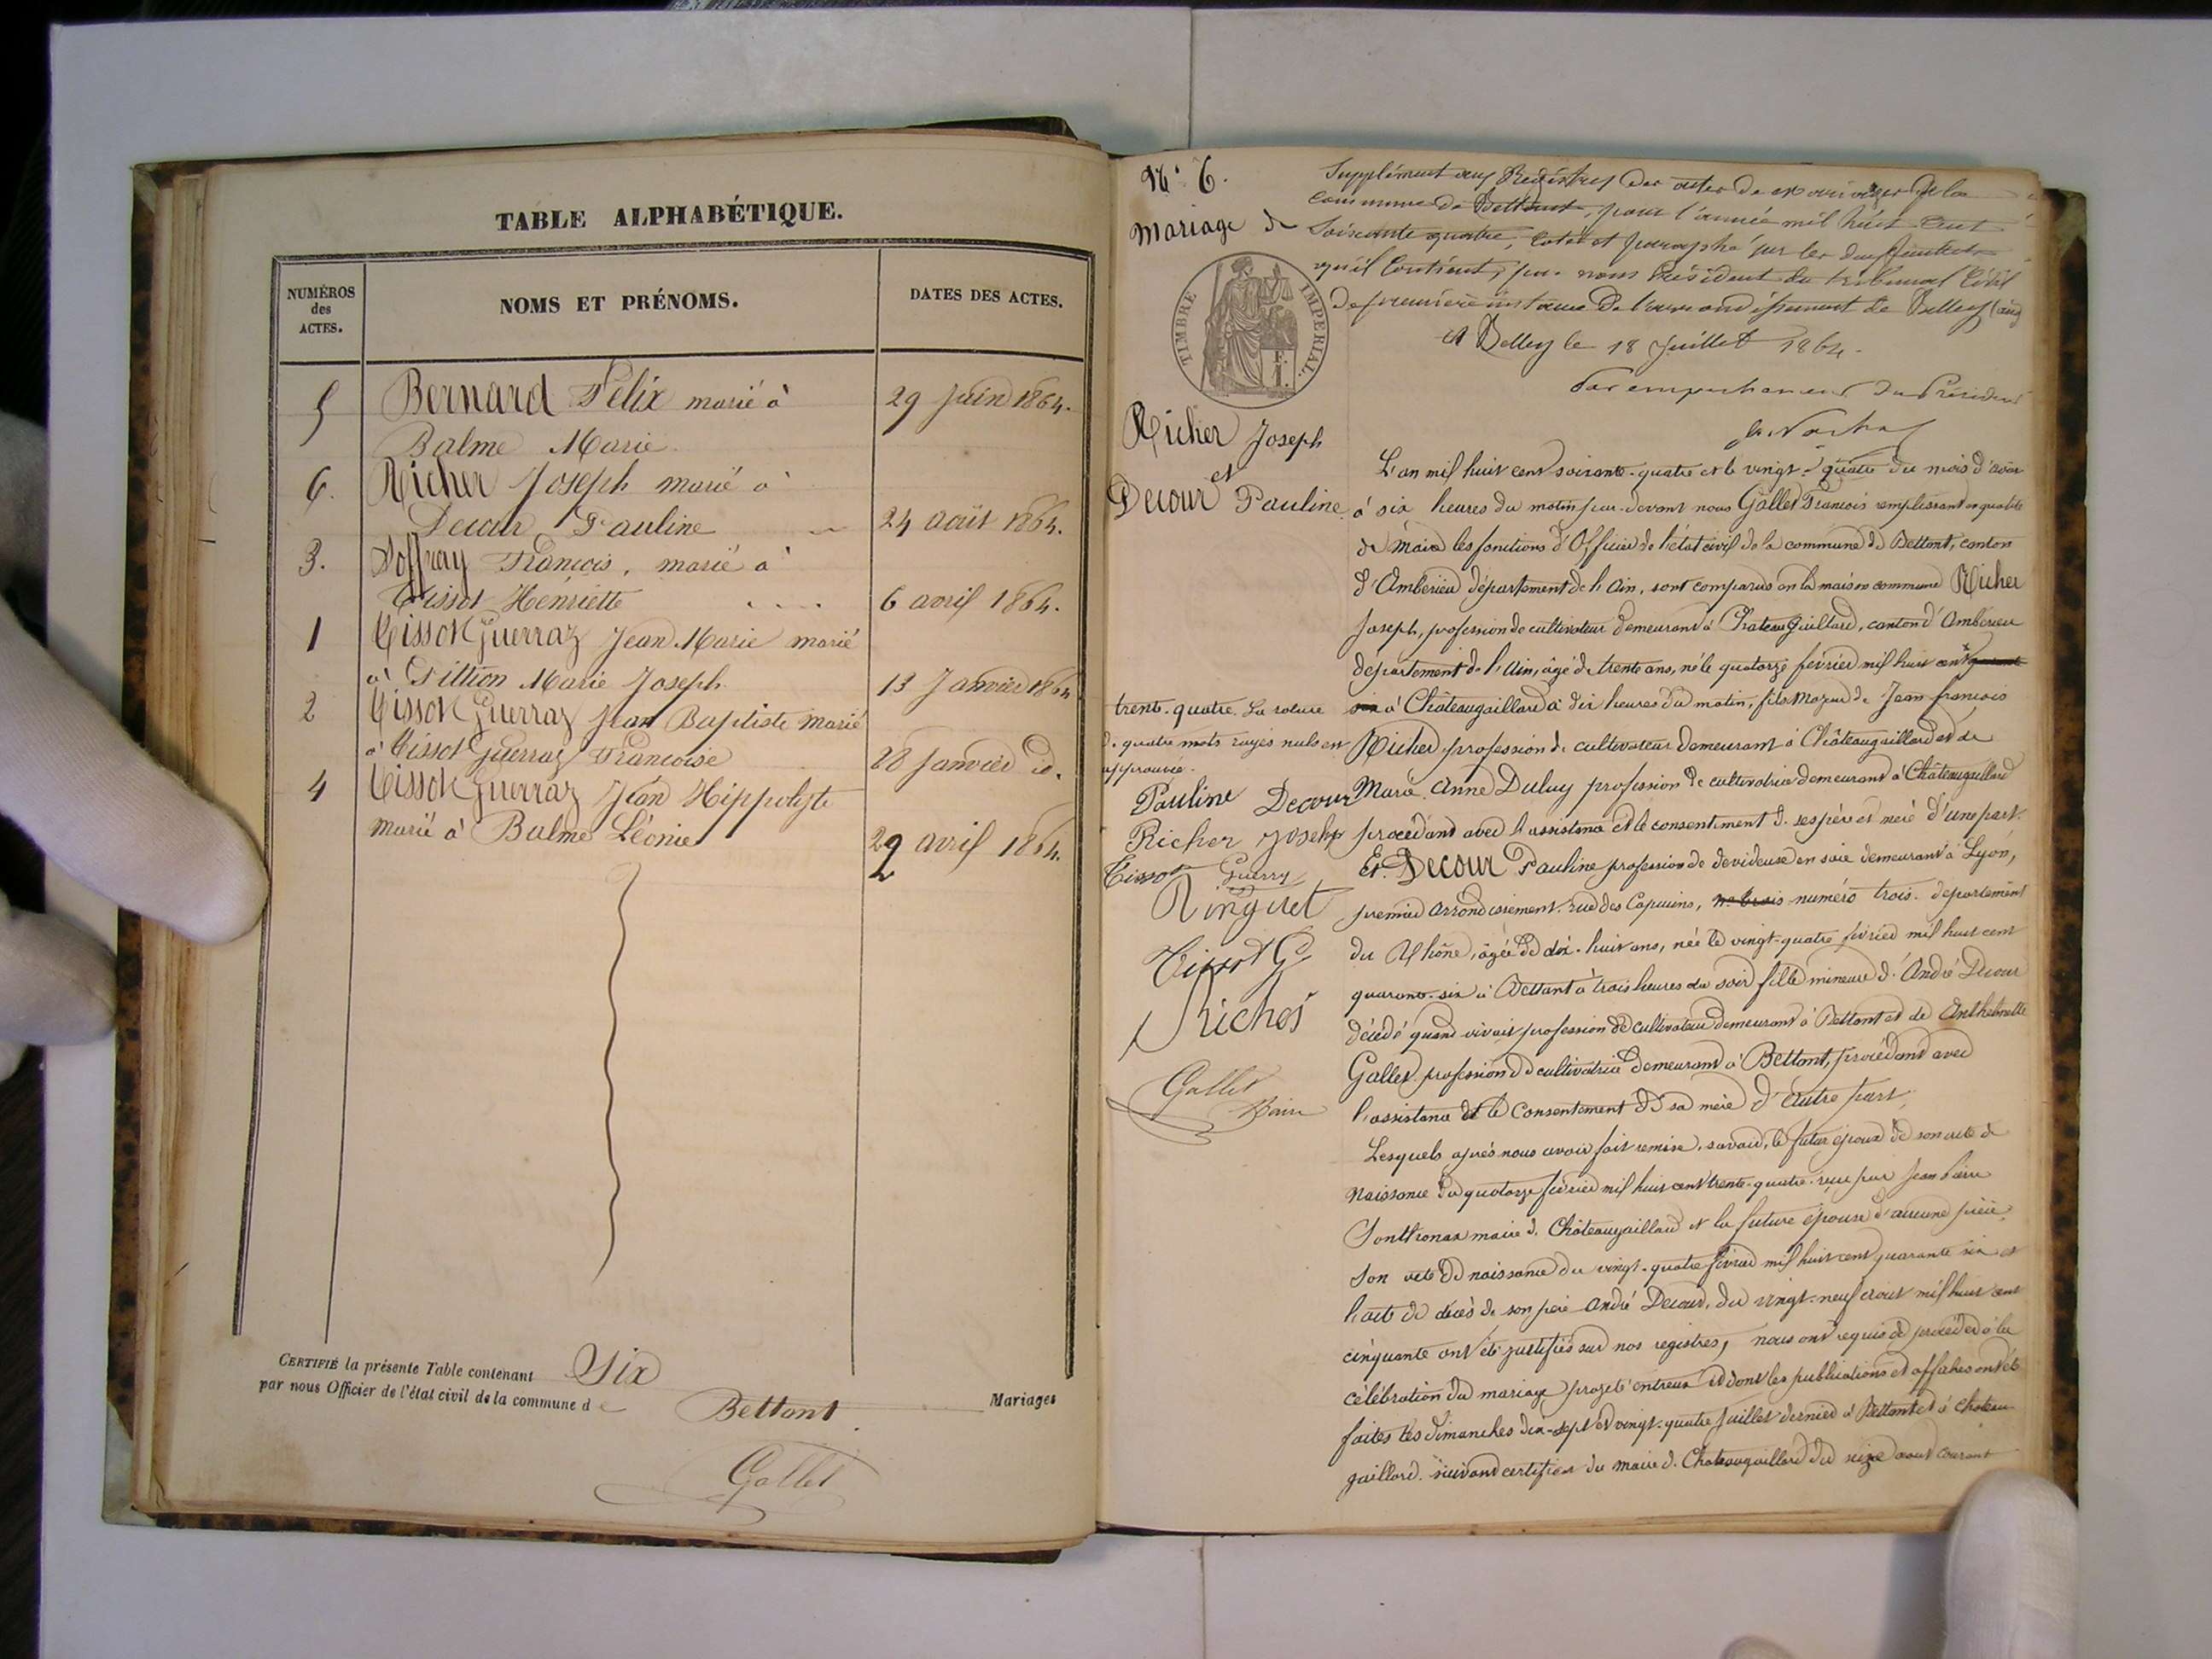 TABLE ALPHABÉTIQUE.
NUMÉROS
des
ACTES.
NOMS ET PRÉNOMS.
DATES DES ACTES.
5 Bernard Félix marié à 29 juin 1864.
Balme Marie
6. Richer Joseph marié à
Decour Pauline 24 août 1864.
3. Joffray François, marié à
Tissot Henriette .... 6 avril 1864.
1 Tissot Guerraz Jean Marie marié
à Tittion Marie Joseph 13 Janvier 1864
2 Tissot Guerraz Jean Baptiste marié
à Tissot Guerraz Françoise 28 Janvier id.
4 Tissot Guerraz Jean Hippolyte
marié à Balme Léonie 29 avril 1864.
CERTIFIÉ la présente Table contenant Six Mariages
par nous Officier de l'état civil de la commune de Bettant.
Gallet
N° 6.
Mariage de
TIMBRE IMPÉRIAL
Richer Joseph
et
Decour Pauline
trente-quatre. La rature
de quatre mots rayés nuls est
approuvée.
Pauline Decour
Richer Joseph
Tissot Guerry
Ringuet
Tissot G
Richer
Gallet
Maire
Supplément aux Registres des actes de mariages de la
commune de Bettant, pour l'année mil huit cent
soixante quatre, coté et paraphé sur les deux feuillets
qu'il contient, par nous Président du tribunal civil
de première instance de l'arrondissement de Belley (ain)
A Belley le 18 Juillet 1864.
Par empechement du Président
L'an mil huit cent soixante-quatre et le vingt-quatre du mois d'août
à six heures du matin par-devant nous Gallet François remplissant en qualité
de Maire les fonctions d'Officier de l'état civil de la commune de Bettant, canton
d'Ambérieu département de l'Ain, sont comparus en la maison commune Richer
Joseph, profession de cultivateur demeurant à Chateau Guillard, canton d'Ambérieu
département de l'Ain, âgé de trente ans, né le quatorze février mil huit cent quarante
six à Châteaugaillard à dix heures du matin, fils majeur de Jean françois
Richer profession de cultivateur demeurant à Châteaugaillard et de
Marie Anne Duluy profession de cultivatrice demeurant à Châteaugaillard
procédant avec l'assistance et le consentement de ses père et mère d'une part.
Et Decour Pauline profession de devideuse en soie demeurant à Lyon,
premier arrondissement rue des Capucins, no trois numéro trois. département
du Rhône, âgée de dix-huit ans, née le vingt-quatre février mil huit cent
quarante-six à Bettant à trois heures du soir fille mineure d'André Decour
décédé quand vivait profession de cultivateur demeurant à Bettant et de Anthelmette
Gallet profession de cultivatrice demeurant à Bettant, procédant avec
l'assistance et le consentement de sa mère d'autre part.
Lesquels après nous avoir fait remise, savoir, le futur époux de son acte de
naissance du quatorze février mil huit cent trente-quatre reçu par Jean Pierre
maire de Châteaugaillard et la future épouse d'aucune pièce,
son acte de naissance du vingt-quatre février mil huit cent quarante six et
l'acte de décès de son père André Decour, du vingt-neuf août mil huit cent
cinquante ont été justifiés sur nos registres, nous ont requis de procéder à la
célébration du mariage projeté entreux et dont les publications et affiches ont été
faites les dimanches dix-sept et vingt-quatre Juillet dernier à Bettant et à Chateau
gaillard. suivant certificat du maire de Chateaugaillard du seize aout courant